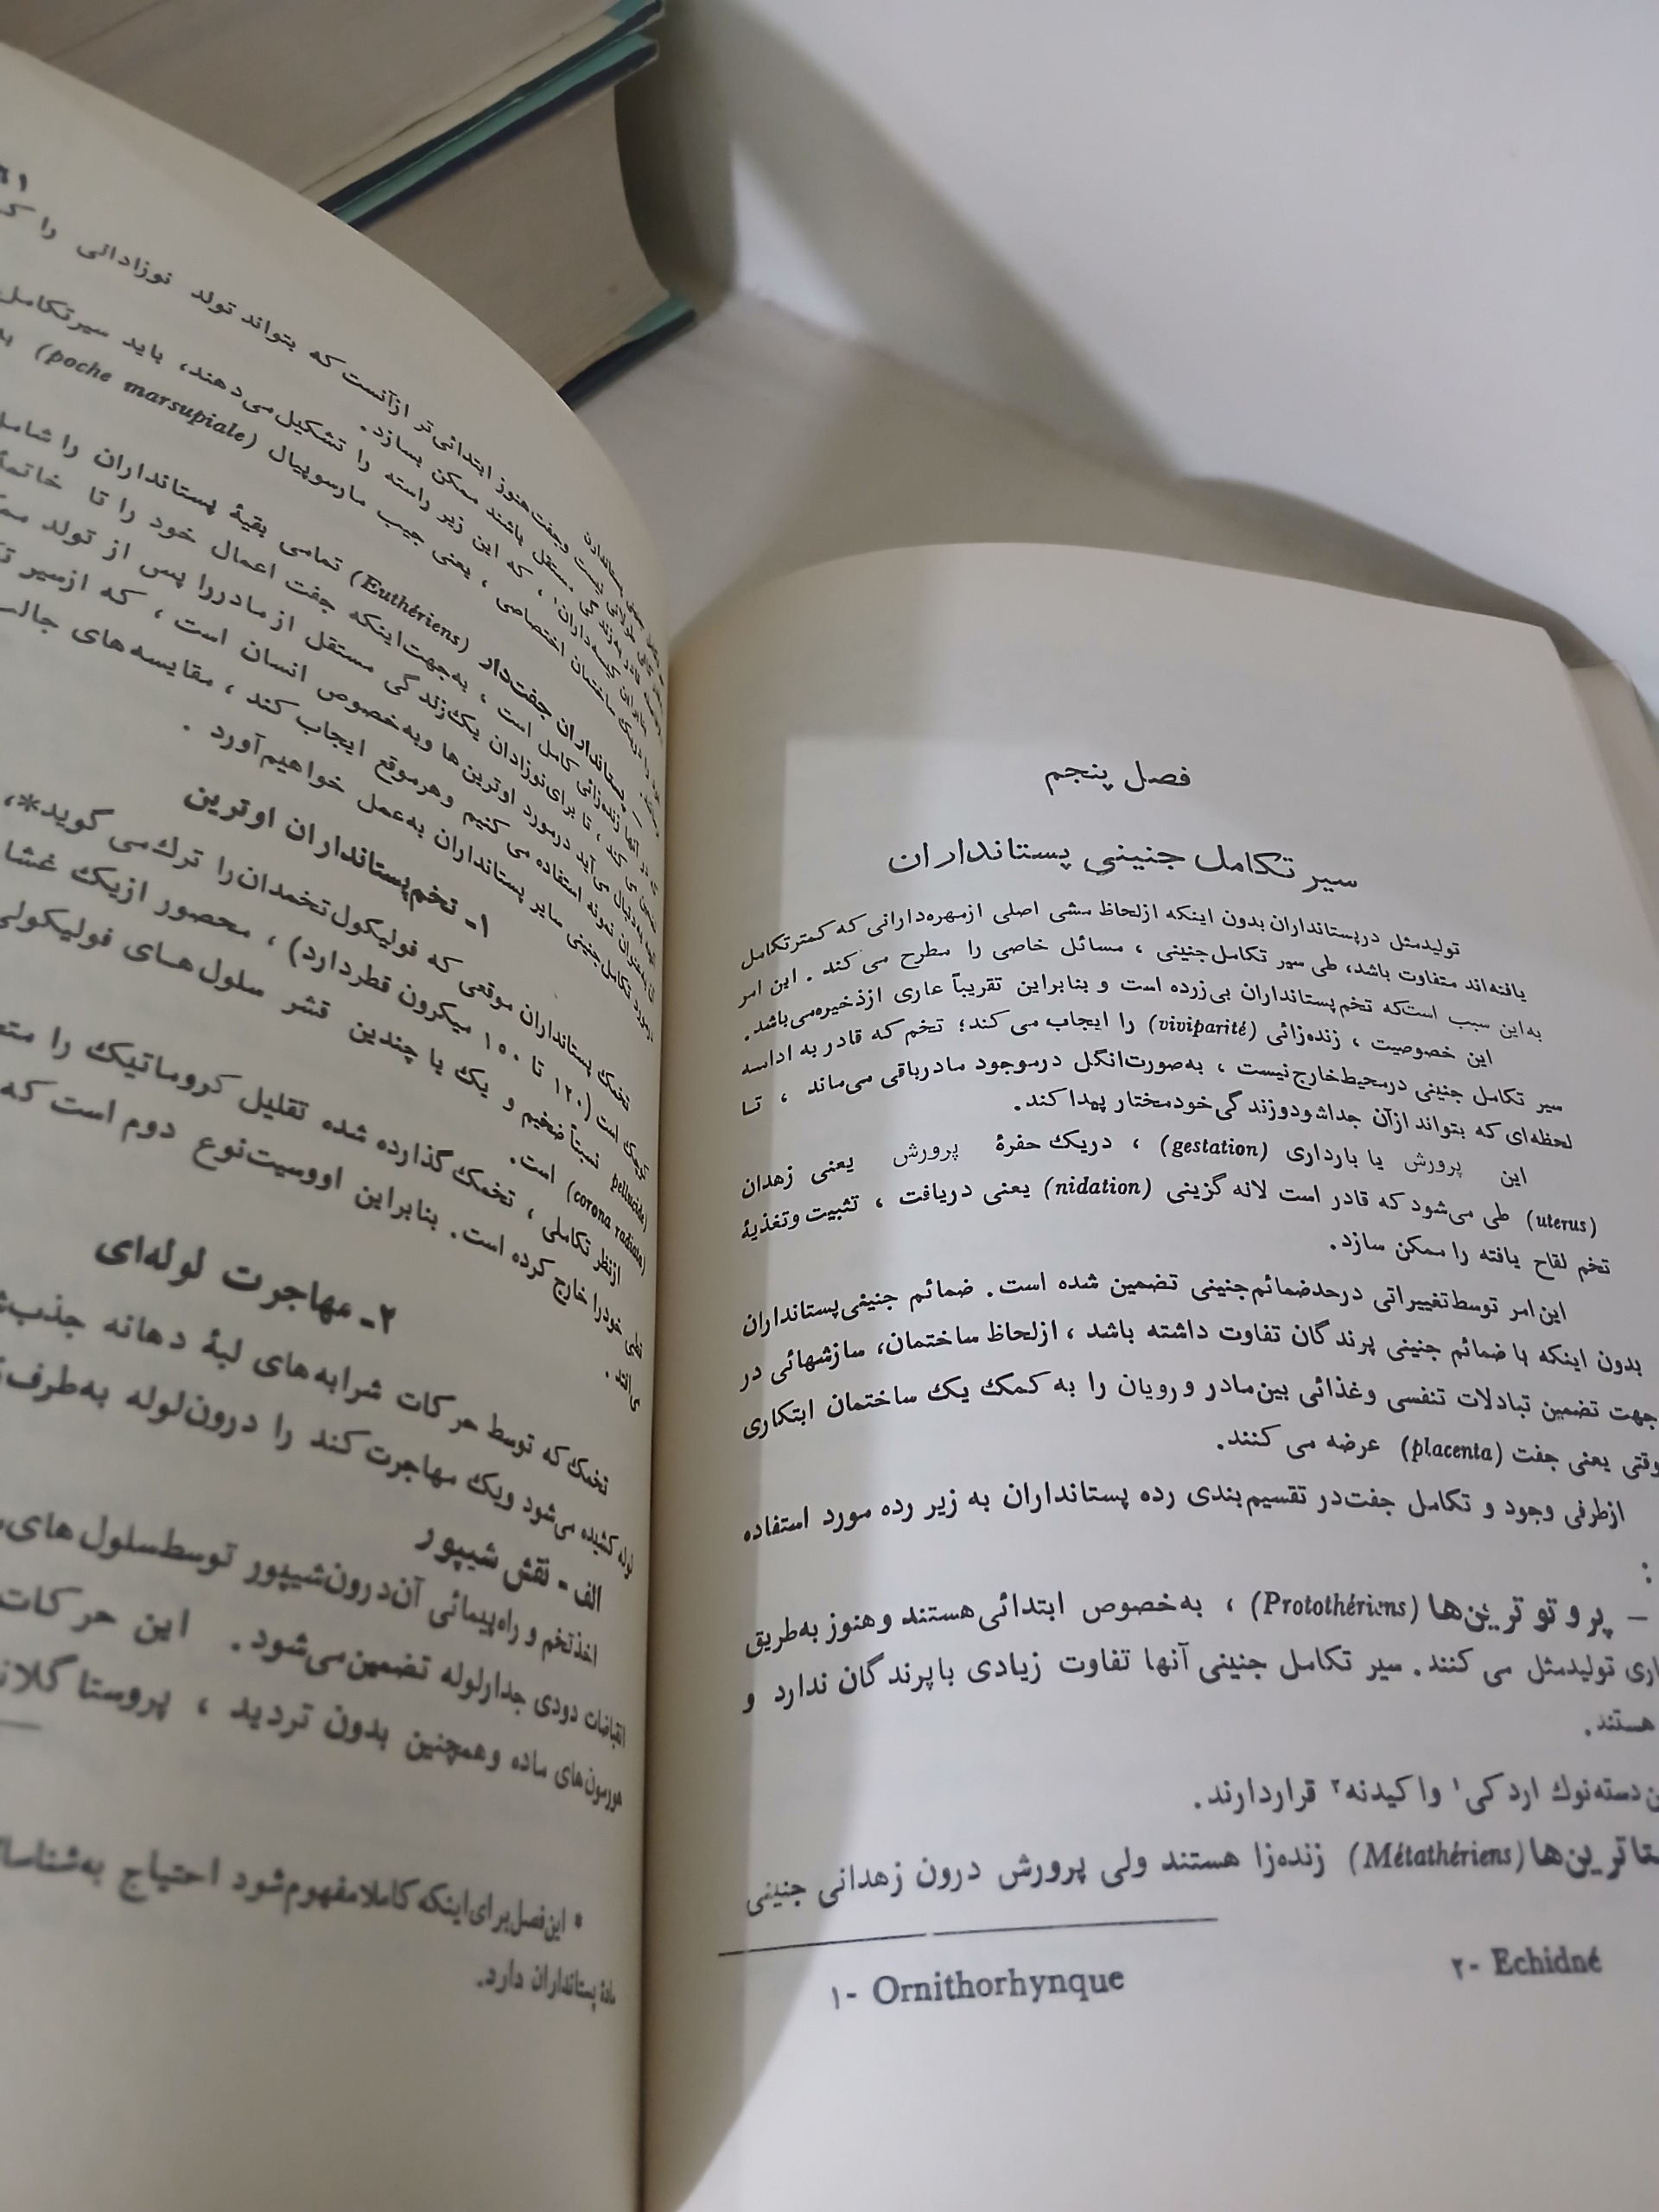 فصل پنجم
سیر تکامل جنینی پستانداران
تولیدمثل در پستانداران بدون اینکه ازلحاظ مشی اصلی ازمهره‌دارانی که کمتر تکامل
یافته‌اند متفاوت باشد، طی سیر تکامل جنینی ، مسائل خاصی را مطرح می‌کند . این امر
به این سبب است که تخم پستانداران بی‌زرده است و بنابراین تقریباً عاری ازذخیره می‌باشد.
این خصوصیت ، زنده‌زائی (viviparité) را ایجاب می‌کند؛ تخم که قادر به ادامه
سیر تکامل جنینی درمحیط خارج نیست ، به‌صورت انگل درموجود مادر باقی می‌ماند ، تا
لحظه‌ای که بتواند ازآن جدا شود و زندگی خودمختار پیدا کند.
این پرورش یا بارداری (gestation) ، دریک حفرهٔ پرورش یعنی زهدان
(uterus) طی می‌شود که قادر است لانه گزینی (nidation) یعنی دریافت ، تثبیت وتغذیهٔ
تخم لقاح یافته را ممکن سازد.
این امر توسط تغییراتی درحد ضمائم جنینی تضمین شده است. ضمائم جنینی پستانداران
بدون اینکه با ضمائم جنینی پرندگان تفاوت داشته باشد ، ازلحاظ ساختمان، سازشهائی در
جهت تضمین تبادلات تنفسی وغذائی بین مادر و رویان را به کمک یک ساختمان ابتکاری
وقتی یعنی جفت (placenta) عرضه می کنند.
ازطرفی وجود و تکامل جفت در تقسیم‌بندی رده پستانداران به زیر رده مورد استفاده
:
– پروتوترین‌ها (Protothériens) ، به‌خصوص ابتدائی هستند وهنوز به‌طریق
تولیدمثل می کنند. سیر تکامل جنینی آنها تفاوت زیادی باپرندگان ندارد و
هستند.
دسته نوك اردکی۱ واکیدنه۲ قراردارند.
(Métathériens) زنده‌زا هستند ولی پرورش درون زهدانی جنینی
۱- Ornithorhynque
۲- Echidné
نیست وجفت هنوز ابتدائی‌تر ازآنست که بتواند تولد نوزادانی را
مستقل باشند ممکن بسازد.
که این زیر راسته را تشکیل می‌دهند، باید سیرتکامل
ساختمان اختصاصی ، یعنی جیب مارسوپیال (poche marsupiale)
پستانداران جفت‌دار (Euthériens) تمامی بقیهٔ پستانداران را شامل
آنها زنده‌زائی کامل است ، به‌جهت اینکه جفت اعمال خود را تا خاتمهٔ
می کند ، تا برای نوزادان یک زندگی مستقل از مادر را پس از تولد
می‌آید درمورد اوترین‌ها وبه‌خصوص انسان است ، که ازسیر
نمونه استفاده می کنیم وهرموقع ایجاب کند ، مقایسه‌های
تکامل جنینی سایر پستانداران به‌عمل خواهیم‌آورد .
۱ـ تخم پستانداران اوترین
تخمک پستانداران موقعی که فولیکول تخمدان را ترك می گوید*،
است (۱۲۰ تا ۱۵۰ میکرون قطردارد) ، محصور ازیک غشا
pellucide) نسبتاً ضخیم و یک یا چندین قشر سلول‌های
(corona radiata) است.
ازنظر تکاملی ، تخمک گذارده شده تقلیل کروماتیک را
خودرا خارج کرده است. بنابراین اووسیت نوع دوم است که
۲ـ مهاجرت لوله‌ای
تخمک که توسط حرکات شرابه‌های لبهٔ دهانه
لوله کشیده می‌شود ویک مهاجرت کند را درون لوله به‌طرف
الف - نقش شیپور
اخذ تخم و راه‌پیمائی آن درون شیپور توسط سلول‌های
انقباضات دودی جدارلوله تضمین می‌شود. این حرکات
هورمون‌های ماده وهمچنین بدون تردید ،
* این فصل برای اینکه کاملا مفهوم شود احتیاج
مادهٔ پستانداران دارد.